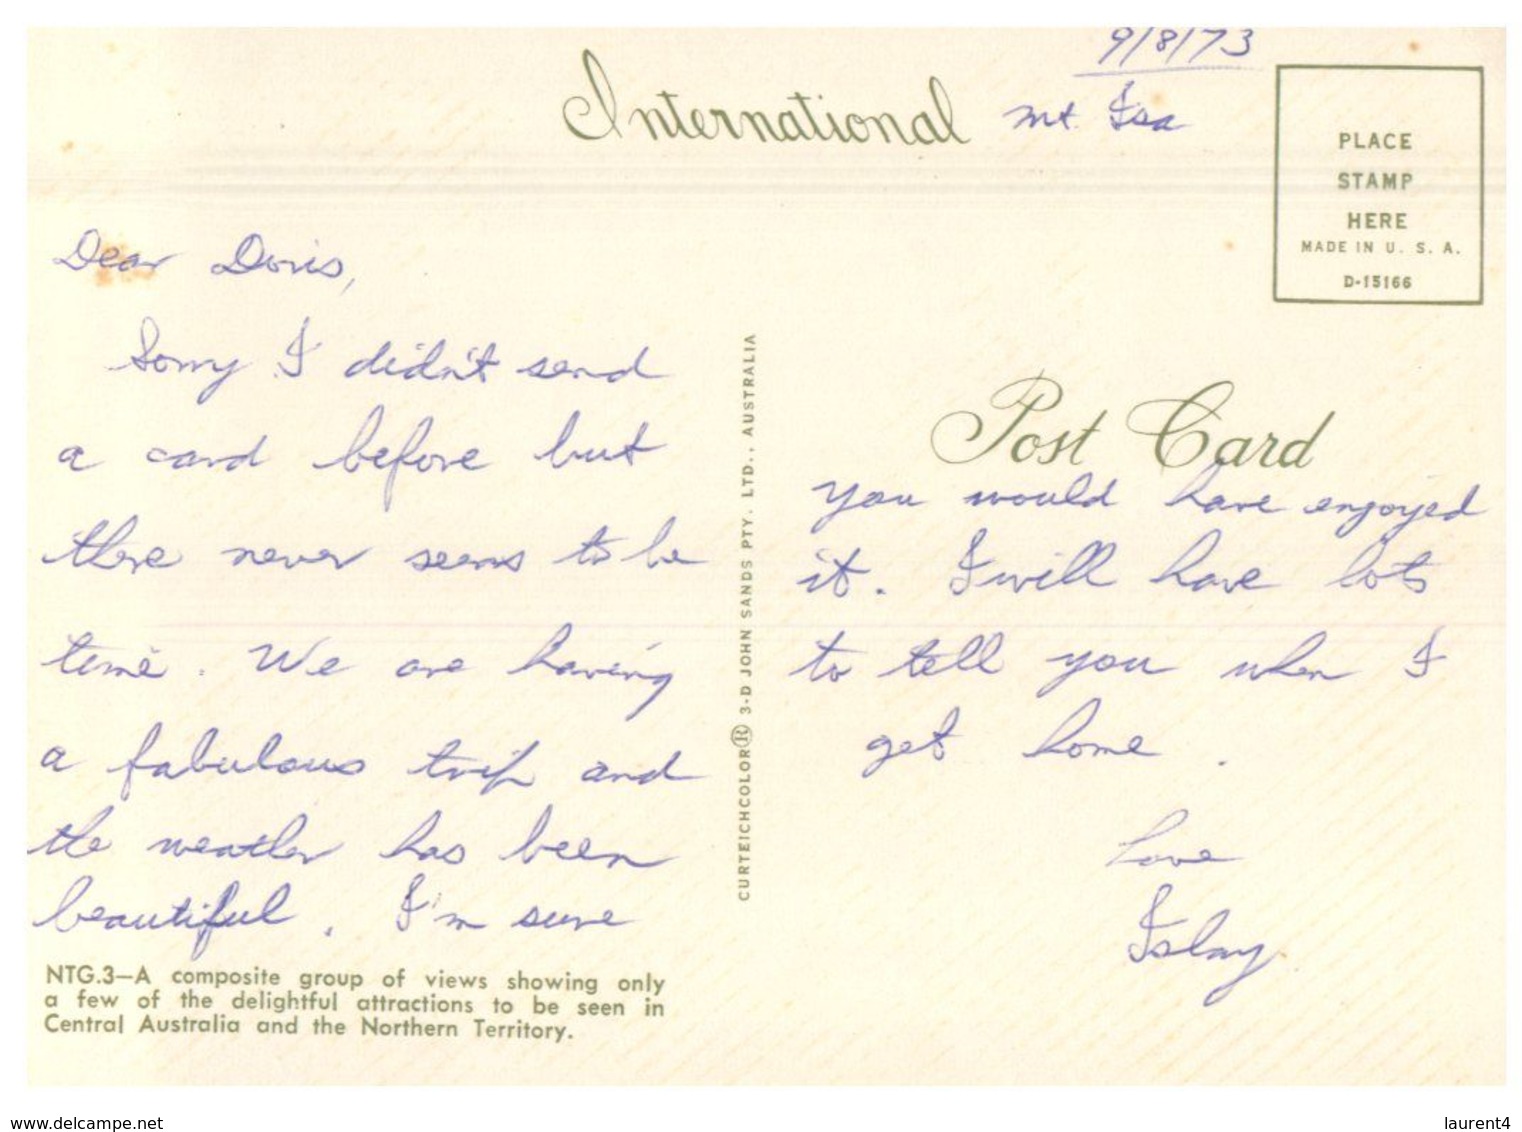 9/8/73
International
Mt. Isa
PLACE
STAMP
HERE
MADE IN U. S. A.
D-15166
Dear Doris,
Sorry I didn't send
a card before but
there never seems to be
time. We are having
a fabulous trip and
the weather has been
beautiful. I'm sure
NTG.3—A composite group of views showing only
a few of the delightful attractions to be seen in
Central Australia and the Northern Territory.
CURTEICHCOLOR® 3-D JOHN SANDS PTY. LTD., AUSTRALIA
Post Card
you would have enjoyed
it. I will have lots
to tell you when I
get home.
Love
Islay
www.delcampe.net
laurent4